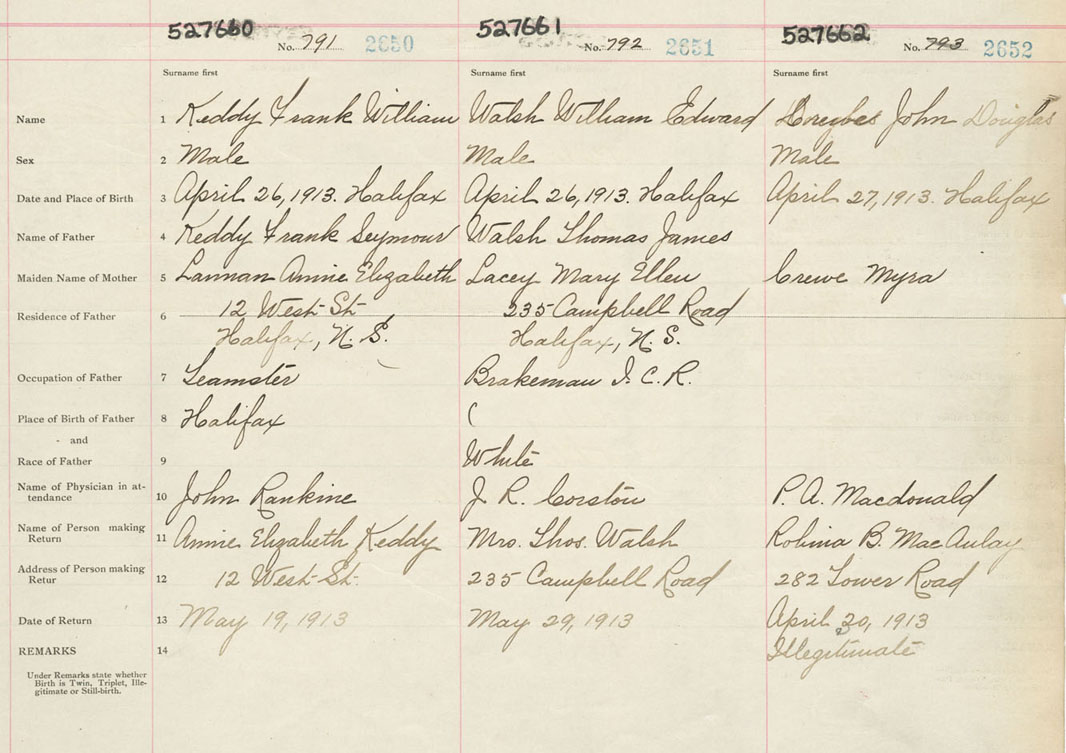 527660 527661 527662
No. 791 2650 No. 792 2651 No. 793 2652
Surname first Surname first Surname first
Name 1 Keddy Frank William Walsh William Edward John Douglas
Sex 2 Male Male Male
Date and Place of Birth 3 April 26, 1913. Halifax April 26, 1913. Halifax April 27, 1913. Halifax
Name of Father 4 Keddy Frank Seymour Walsh Thomas James
Maiden Name of Mother 5 Lannan Annie Elizabeth Lacey Mary Ellen Crewe Myra
Residence of Father 6 12 West St. 235 Campbell Road
Halifax, N. S. Halifax, N. S.
Occupation of Father 7 Teamster Brakeman I. C. R.
Place of Birth of Father 8 Halifax (
- and
Race of Father 9 White
Name of Physician in at-
tendance 10 John Rankine J. R. Corston P. A. Macdonald
Name of Person making
Return 11 Annie Elizabeth Keddy Mrs. Thos. Walsh Robina B. MacAulay
Address of Person making
Retur 12 12 West St. 235 Campbell Road 282 Tower Road
Date of Return 13 May 19, 1913 May 29, 1913 April 30, 1913
REMARKS 14 Illegitimate
Under Remarks state whether
Birth is Twin, Triplet, Ille-
gitimate or Still-birth.